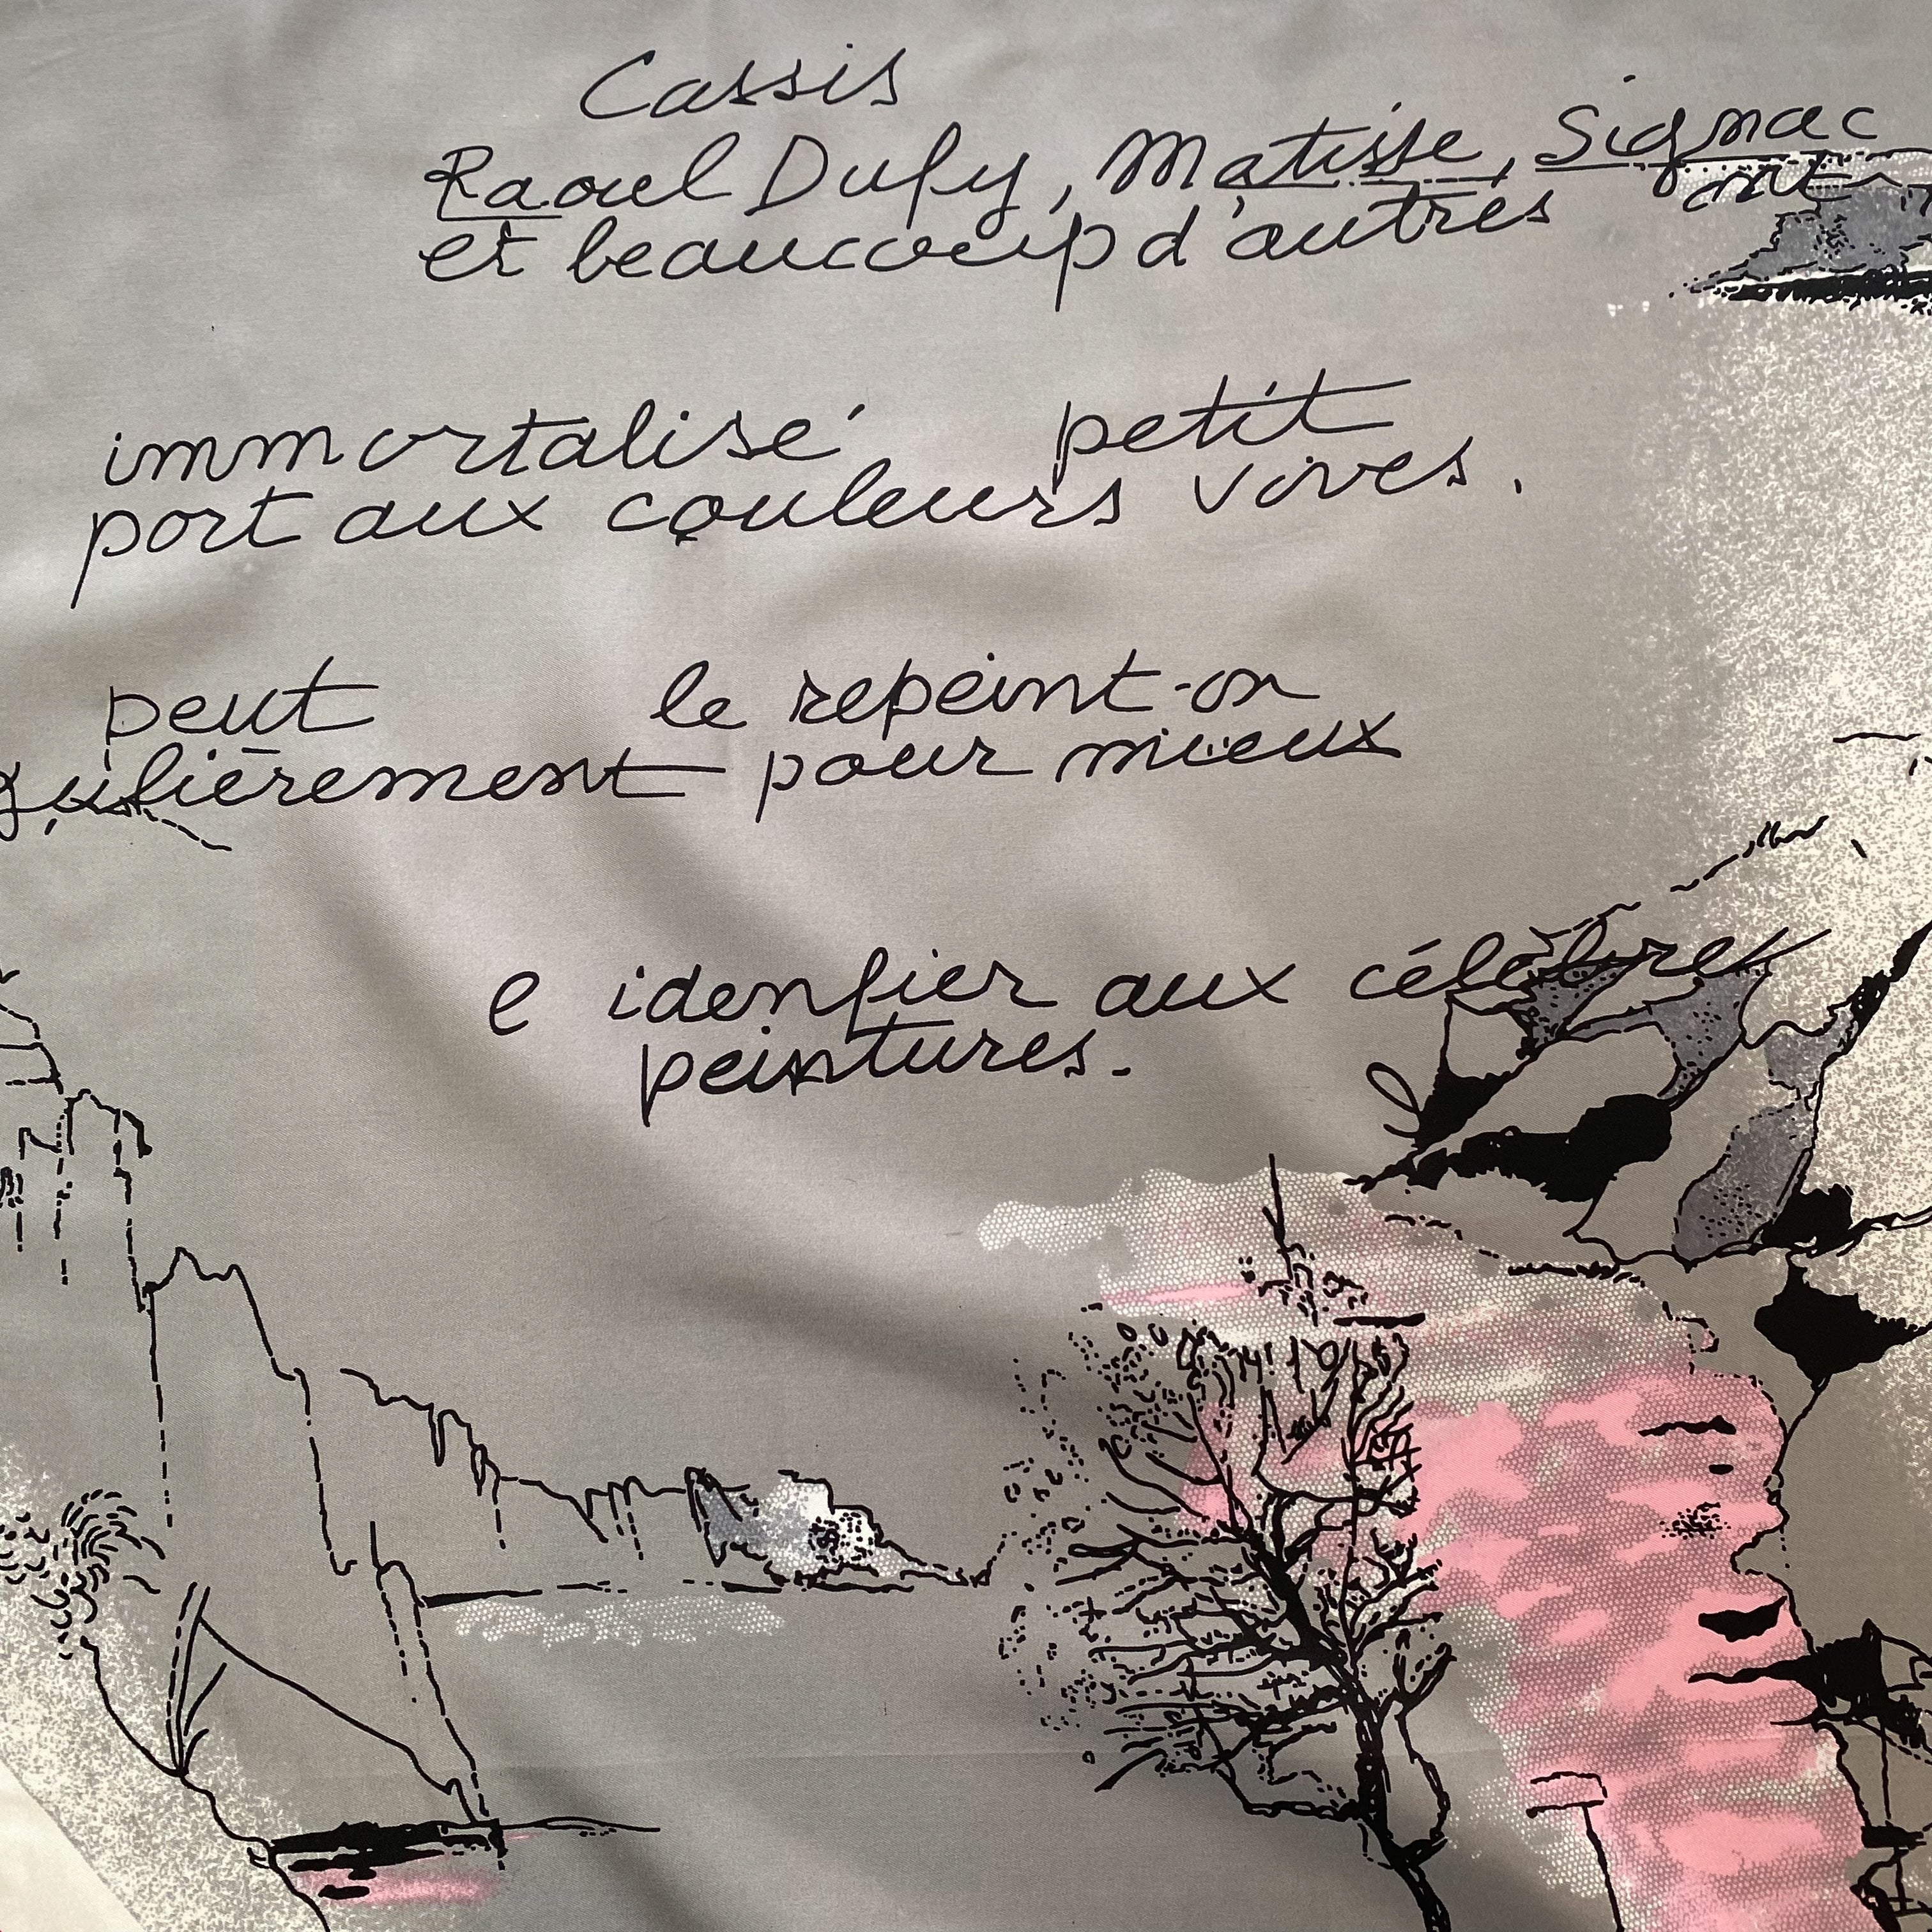 Cassis
Raoul Dufy, Matisse, Signac
et beaucoup d'autres ont
immortalisé petit
port aux couleurs vives.
peut le repeint-on
gulièrement pour mieux
e idenfier aux célèbres
peintures.